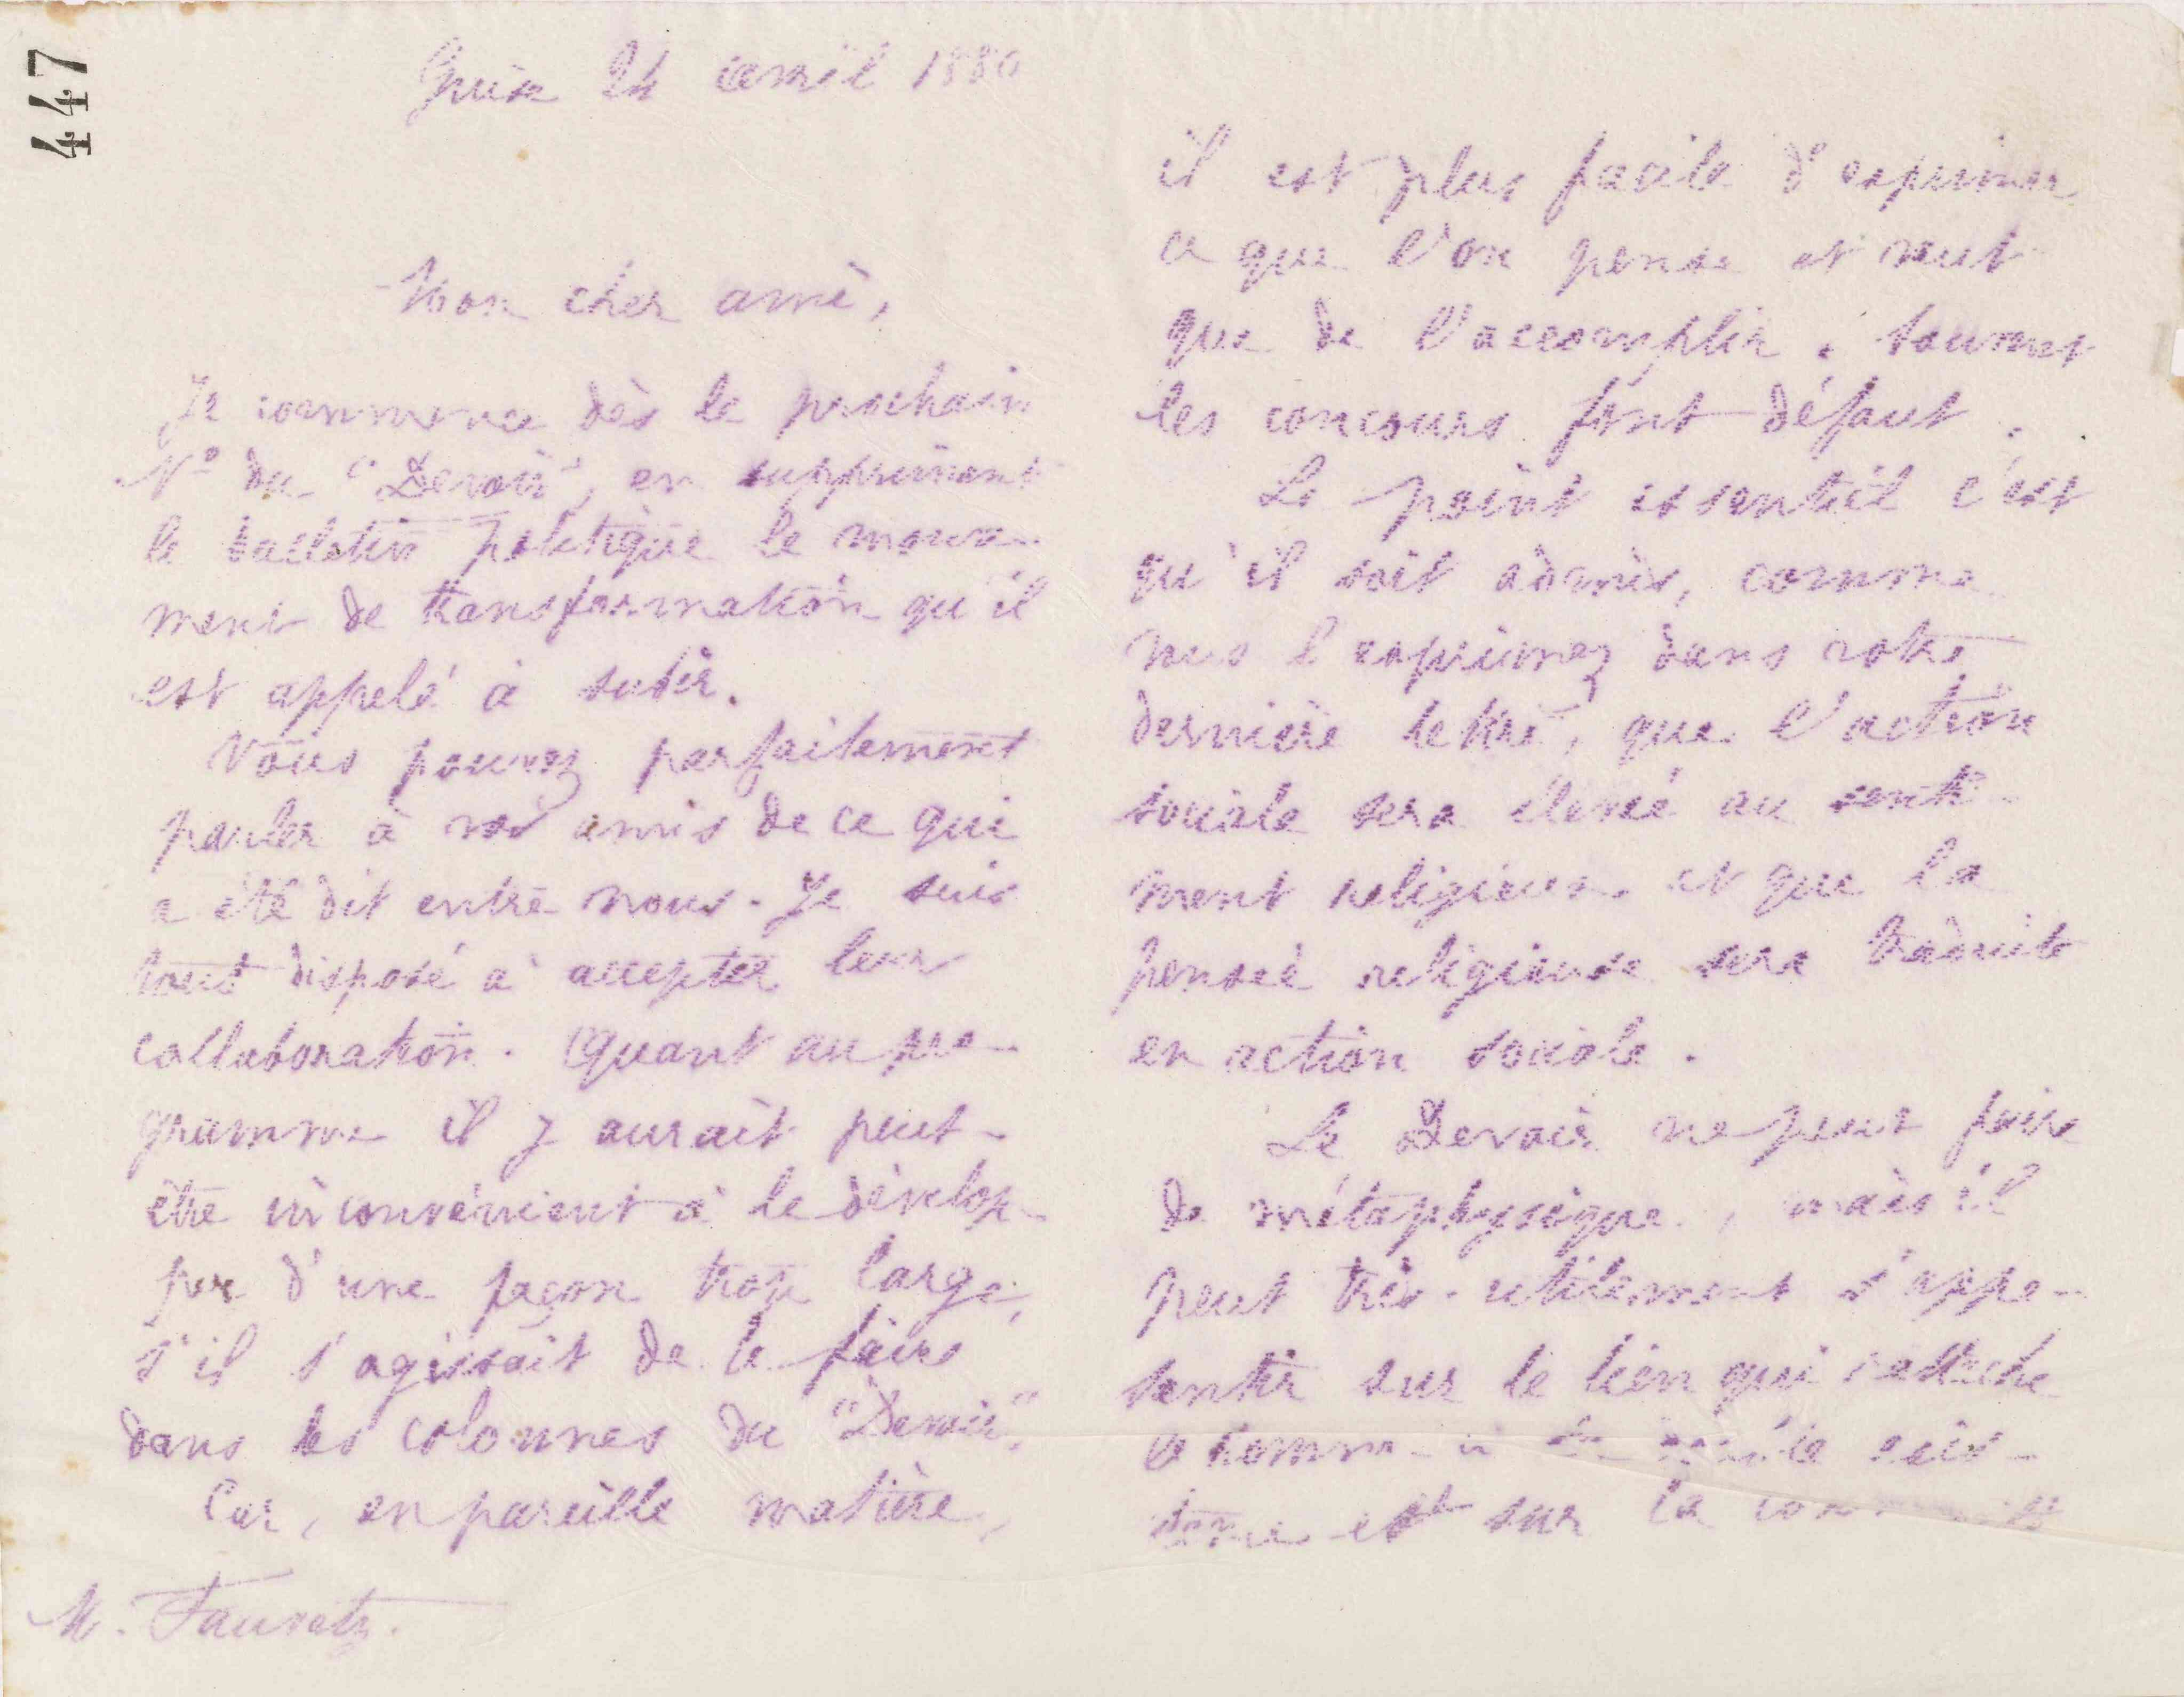 447
Guise 24 avril 1880
Mon cher ami,
Je commence dès le prochain
N° du "Devoir", en supprimant
le bulletin politique le mouve-
ment de transformation qu'il
est appelé à subir.
Vous pouvez parfaitement
parler à vos amis de ce qui
a été dit entre nous. Je suis
tout disposé à accepter leur
collaboration. Quant au pro-
gramme il y aurait peut-
être inconvénient à le dévelop-
per d'une façon trop large,
s'il s'agissait de le faire
dans les colonnes du "Devoir".
Car, en pareille matière,
M. Fauvety.
il est plus facile d'exprimer
ce que l'on pense et veut
que de l'accomplir. souvent
les concours font défaut.
Le point essentiel c'est
qu'il soit admis, comme
vous l'exprimez dans votre
dernière lettre, que l'action
sociale sera élevée au senti-
ment religieux et que la
pensée religieuse sera traduite
en action sociale.
Le Devoir ne peut faire
de métaphysique, mais il
peut très-utilement s'appe-
santir sur le lien qui rattache
exis-
tence et sur la